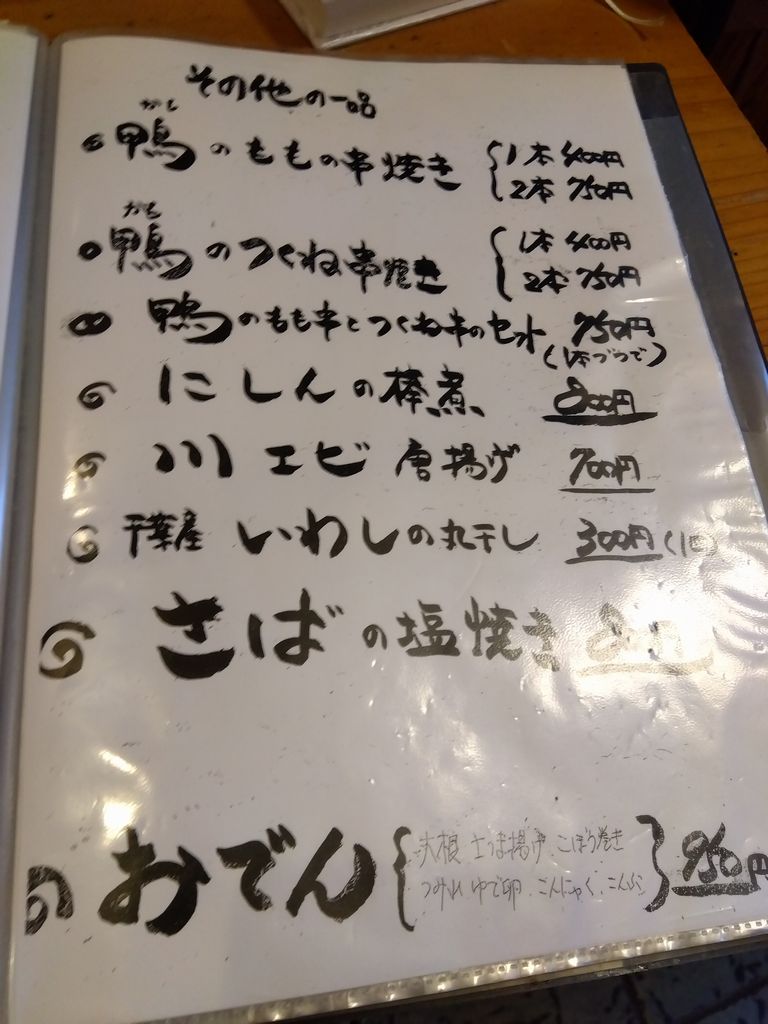 その他の一品
かも
鴨のももの串焼き 1本 400円
2本 750円
かも
鴨のつくね串焼き 1本 400円
2本 750円
鴨のもも串とつくね串のセット 750円
(1本づつで)
にしんの棒煮 800円
川エビ 唐揚げ 700円
千葉産 いわしの丸干し 300円
さばの塩焼き
おでん 大根 さつま揚げ ごぼう巻き 950円
つみれ ゆで卵 こんにゃく こんぶ